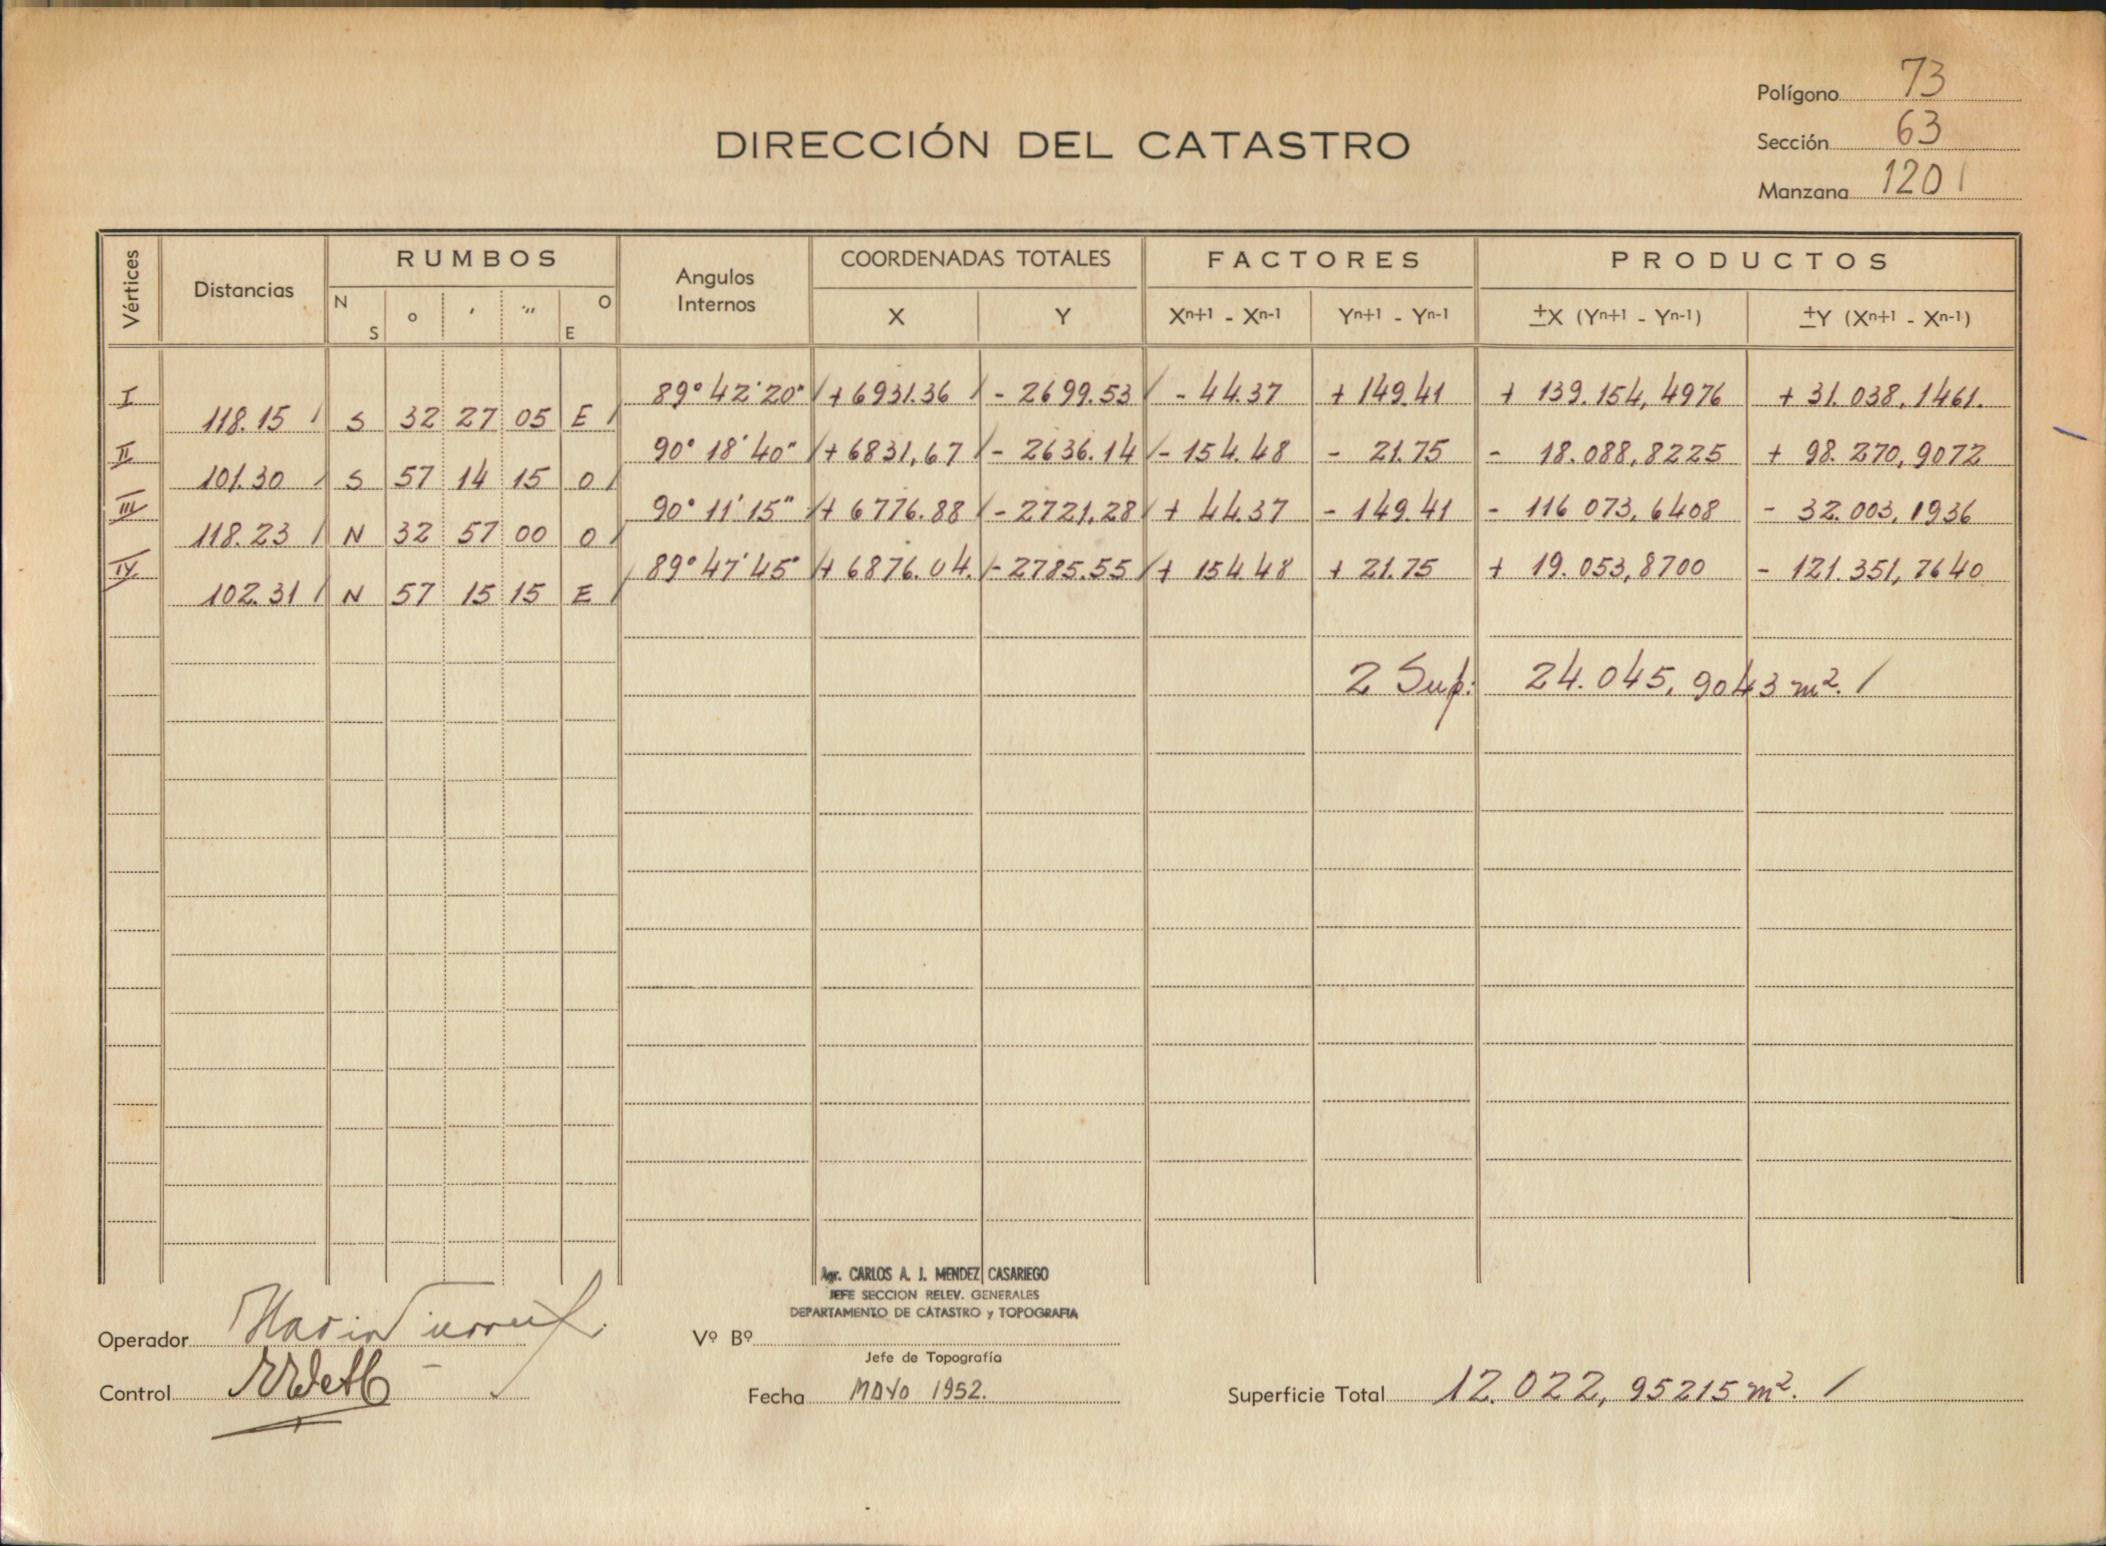 Polígono 73
Sección 63
Manzana 1201
DIRECCIÓN DEL CATASTRO
Vértices Distancias RUMBOS Angulos Internos COORDENADAS TOTALES FACTORES PRODUCTOS
N S o ' '' O E X Y Xn+1 - Xn-1 Yn+1 - Yn-1 ±X (Yn+1 - Yn-1) ±Y (Xn+1 - Xn-1)
I 89° 42' 20" + 6931.36 - 2699.53 - 44.37 + 149.41 + 139.154,4976 + 31.038,1461.
118.15 S 32 27 05 E
II 90° 18' 40" + 6831,67 - 2636.14 - 154.48 - 21.75 - 18.088,8225 + 98.270,9072
101.30 S 57 14 15 O
III 90° 11' 15" + 6776.88 - 2721,28 + 44.37 - 149.41 - 116 073,6408 - 32.003,1936
118.23 N 32 57 00 O
IV 89° 47' 45" + 6876.04. - 2785.55 + 154.48 + 21.75 + 19.053,8700 - 121.351,7640
102.31 N 57 15 15 E
2 Sup: 24.045,9043 m².
Agr. CARLOS A. J. MENDEZ CASARIEGO
JEFE SECCION RELEV. GENERALES
DEPARTAMENTO DE CATASTRO y TOPOGRAFIA
Operador
Vº Bº
Jefe de Topografía
Control
Fecha MAYO 1952.
Superficie Total 12.022,95215 m².